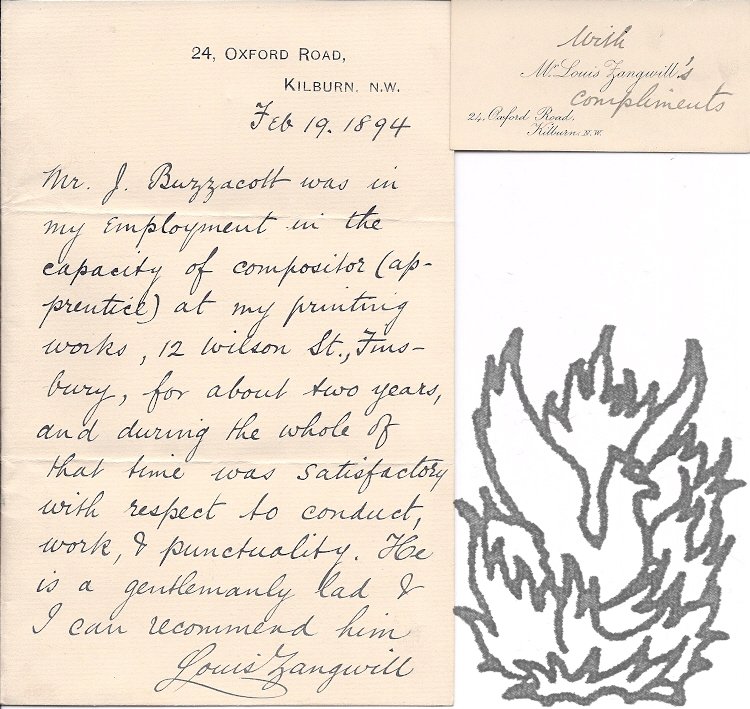 24, OXFORD ROAD,
KILBURN. N.W.
Feb 19. 1894
Mr. J. Buzzacott was in
my employment in the
capacity of compositor (ap-
prentice) at my printing
works, 12 Wilson St., Fins-
bury, for about two years,
and during the whole of
that time was satisfactory
with respect to conduct,
work, & punctuality. He
is a gentlemanly lad &
I can recommend him
Louis Zangwill
With
Mr Louis Zangwill's
compliments
24, Oxford Road,
Kilburn. N.W.